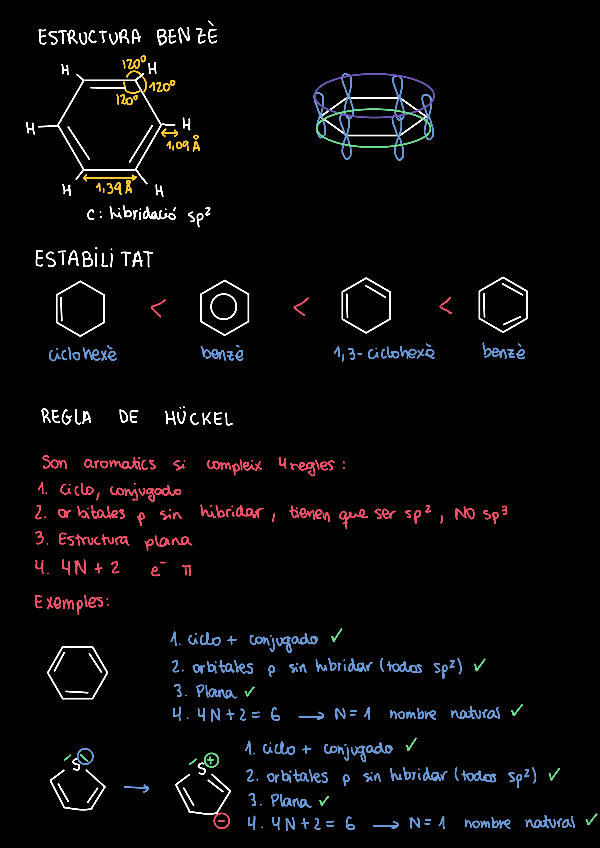 ESTRUCTURA BENZÈ
120º
H H
120º
120º
H H
1,09 Å
H 1,39 Å H
C: hibridació sp²
ESTABILITAT
< < <
ciclohexè benzè 1,3-ciclohexè benzè
REGLA DE HÜCKEL
Son aromatics si compleix 4 regles:
1. Ciclo, conjugado
2. orbitales p sin hibridar, tienen que ser sp², NO sp³
3. Estructura plana
4. 4N+2 e⁻ π
Exemples:
1. ciclo + conjugado ✓
2. orbitales p sin hibridar (todos sp²) ✓
3. Plana ✓
4. 4N+2 = 6 → N=1 nombre natural ✓
S → S + −
1. ciclo + conjugado ✓
2. orbitales p sin hibridar (todos sp²) ✓
3. Plana ✓
4. 4N+2 = 6 → N=1 nombre natural ✓